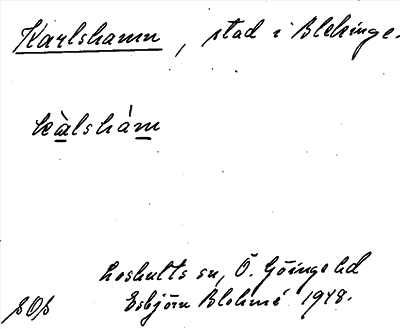 Karlshamn, stad i Blekinge.
kàlshám
Loshults sn, Ö. Göinge hd
Esbjörn Blohmé 1948.